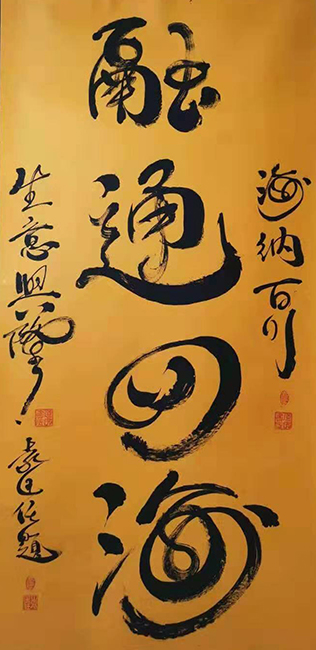 海纳百川
融通四海
生意興隆
題